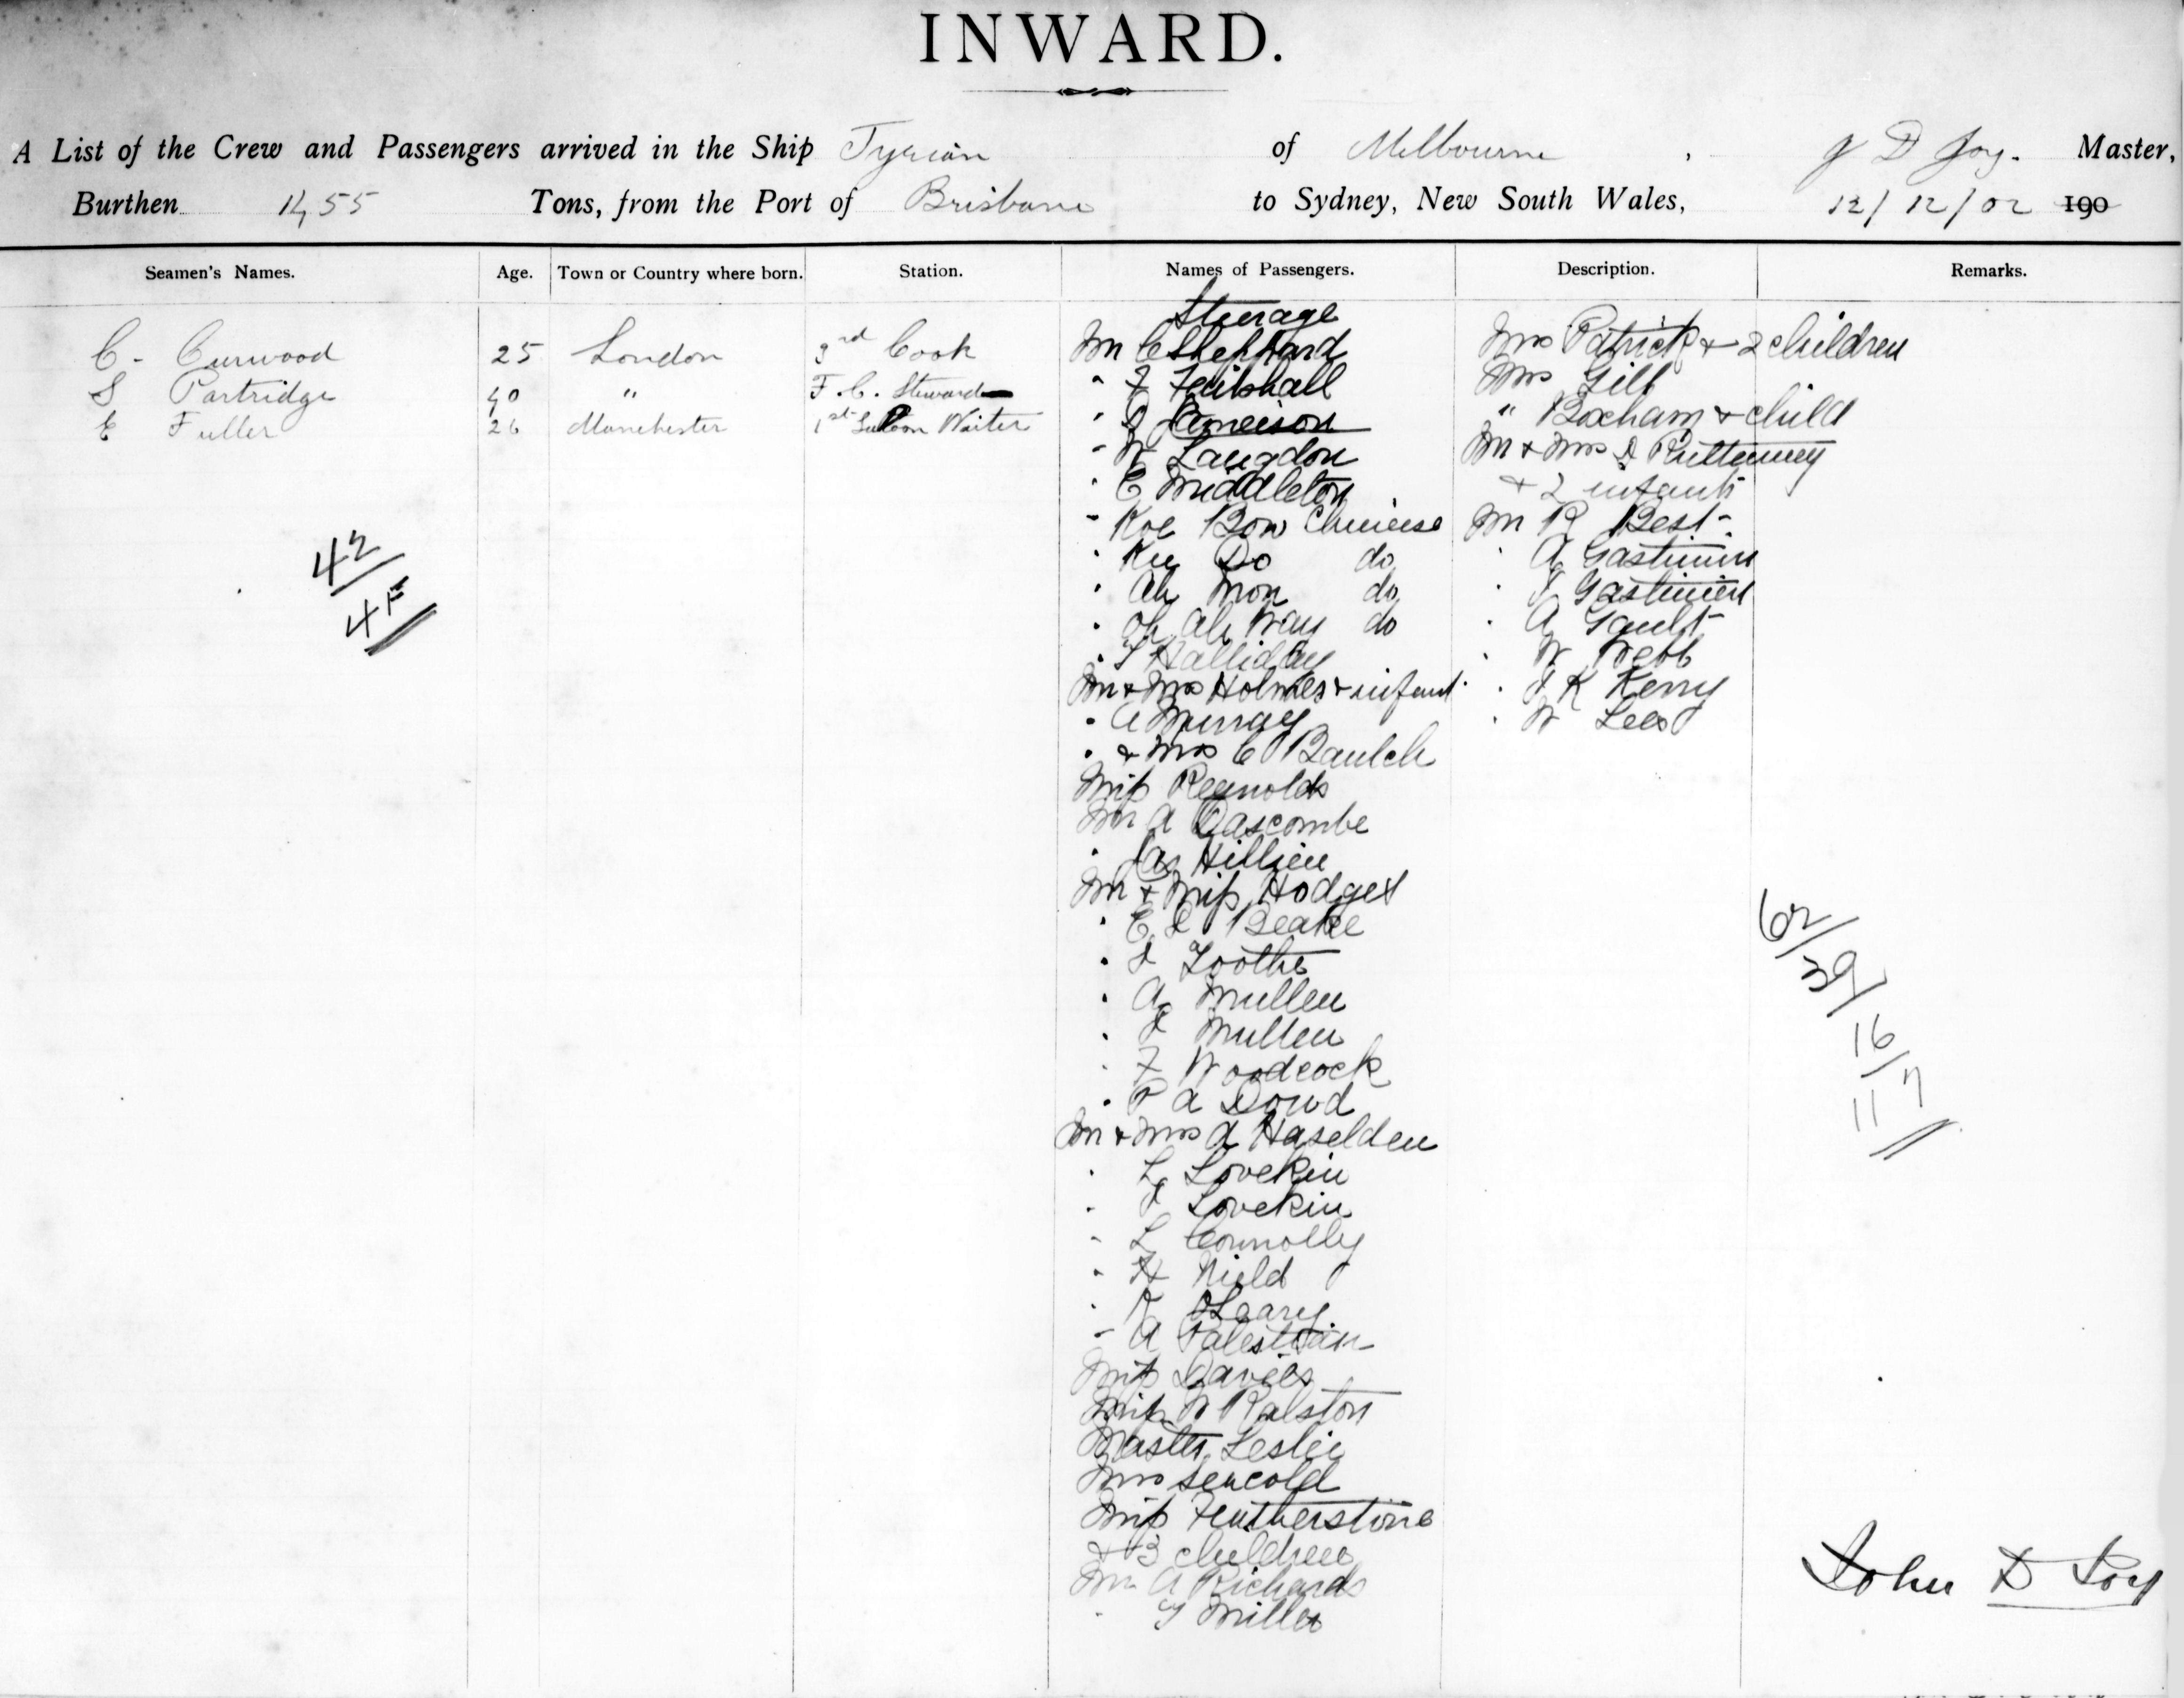 INWARD.
A List of the Crew and Passengers arrived in the Ship Tyrian of Melbourne, J D Joy. Master,
Burthen 1455 Tons, from the Port of Brisbane to Sydney, New South Wales, 12/12/02 190
Seamen's Names. Age. Town or Country where born. Station. Names of Passengers. Description. Remarks.
C. Curwood 25 London 3rd Cook
S Partridge 40 " F.C. Steward
E Fuller 26 Manchester 1st Saloon Waiter
42
4F
Steerage
Mr C Sheppard
" J
" Jameison
" W Langdon
" E Middleton
" Koe Bow Chinese
" Kee Do do
" Ah Mon do
" Oh Ah Way do
" T Halliday
Mr & Mrs Holmes & infant
" A Murray
" & Mrs C Baulch
Miss Reynolds
Mr A Dascombe
" Jas Hillier
Mr & Miss Hodges
" E L Beake
" J Toothe
" A Mullen
" J Mullen
" F Woodcock
" P A Dowd
Mr & Mrs A Haselden
" L Lovekin
" J Lovekin
" L Connolly
" H Nield
" R O'Leary
" A
Miss Davies
Miss W Ralston
Master Leslie
Mrs
Miss Featherstone
& 3 children
Mr A Richards
" T Miller
Mrs Patrick & 2 children
Mrs Gill
" Boxham & child
Mr & Mrs
& 2 infants
Mr R Best
" A Gastinien
" J Gastinien
" A Gault
" W Webb
" J K Kerry
" W Lees
62/29/16/7
11
John D Joy